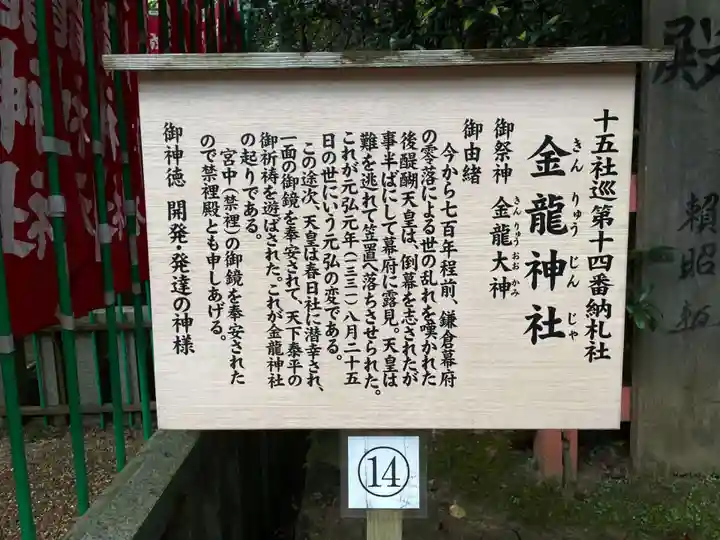 十五社巡第十四番納札社
金龍神社
きんりゅうじんじゃ
御祭神 金龍大神
きんりゅうおおかみ
御由緒
今から七百年程前、鎌倉幕府
の零落による世の乱れを嘆かれた
後醍醐天皇は、倒幕を志されたが
事半ばにして幕府に露見。天皇は
難を逃れて笠置へ落ちさせられた。
これが元弘元年(一三三一)八月二十五
日の世にいう元弘の変である。
この途次、天皇は春日社に潜幸され、
一面の御鏡を奉安されて、天下泰平の
御祈祷を遊ばされた。これが金龍神社
の起りである。
宮中(禁裡)の御鏡を奉安された
ので禁裡殿とも申しあげる。
御神徳 開発・発達の神様
⑭
殿
頼昭
神社